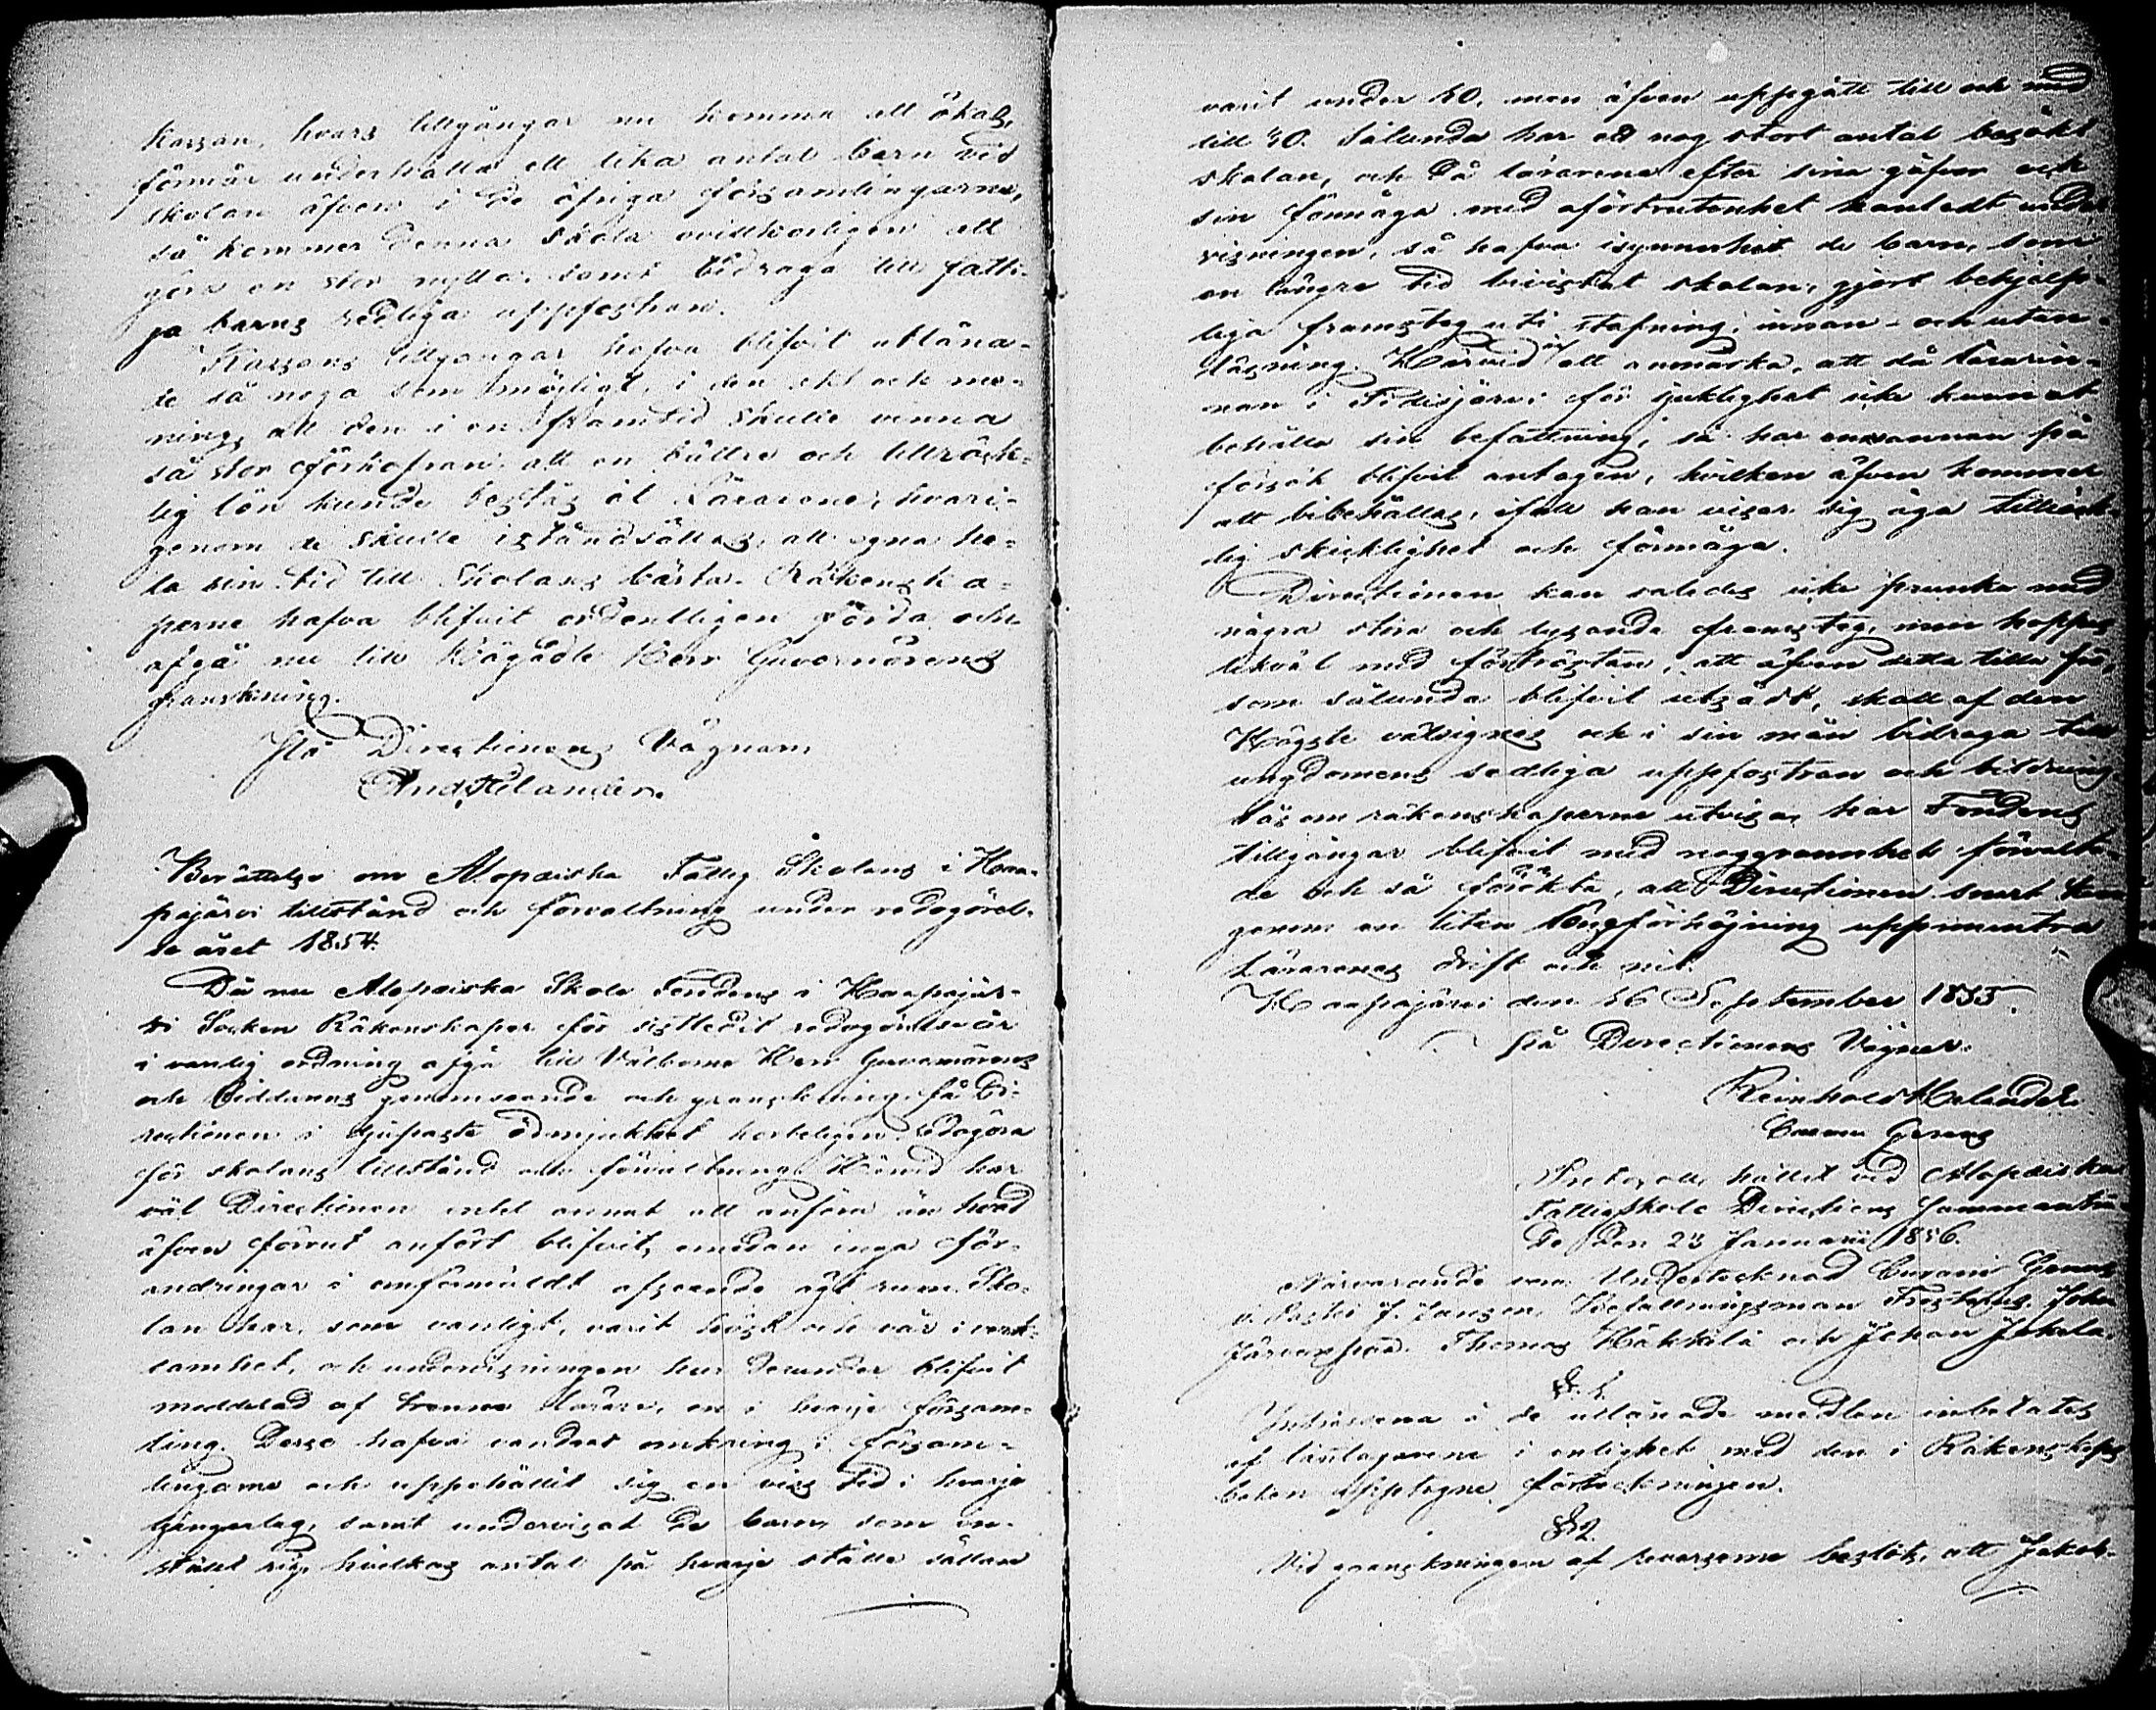 Kassan, hvars tillgångar nu komma att ökas,
förmår underhålla ett lika antal barn vid
skolan äfven i de öfriga församlingarne,
så kommer denna skola ovillkorligen att
göra en stor nytta, samt bidraga till fatti-
ga barns sedliga uppfostran.
Kassans tillgångar hafva blifvit utlåna-
de så noga som möjligt, i den akt och me-
ning, att den i en framtid skulle vinna
så stor förkofran att en bättre och tillräck-
lig lön kunde bestås åt Lärarene, hvari-
genom de skulle iståndsättas, att egna he-
la sin tid till Skolans bästa. Räkenska-
perne hafva blifvit ordentligen förda och
afgå nu till Högädle Herr Guvernörens
granskning.
På Directionens Vägnar,
And. Helander.
Berättelse om Alopæiska Fattig Skolans i Haa-
pajärvi tillstånd och förvaltning under redogörel-
se året 1854.
Då nu Alopæiska Skole Fondens i Haapajär-
vi Socken Räkenskaper för sistledit redogörelse år
i vanlig ordning afgå till Välborne Herr Guvernörens
och Riddarens genomseende och granskning, få Di-
rectionen i djupaste ödmjukhet korteligen redogöra
för skolans tillstånd och förvaltning. Härvid har
väl Directionen intet annat att anföra än hvad
äfven förrut anfört blifvit, emedan inga för-
andringar i omförmäldt afseende ägt rum. Sko-
lan har, som vanligt, varit höst och vår i verk-
samhet, och undervisningen har derunder blifvit
meddelad af trenne lärare, en i hvarje försam-
ling. Desse hafva vandrat omkring i försam-
lingarne och uppehållit sig en viss tid i hvarje
byingarlag, samt undervisat de barn, som in-
ställt sig, hvilkas antal på hvarje ställe sällan
varit under 10, men äfven uppgått till och med
till 30. Sålunda har ett nog stort antal besökt
skolan, och då lärarene efter sina gåfvor och
sin förmåga med oförtrutenhet handledt under
visningen, så hafva isynnerhet de barn, som
en längre tid bivistat skolan, gjort behjelp-
liga framsteg uti stafning, innan- och utan-
läsning. Härvid är att anmärka, att då lärarin-
nan i Pidisjärvi för sjuklighet icke kunnat
behålla sin befattning, så har en annan på
försök blifvit antagen, hvilken äfven kommer
att bibehållas, ifall han visar sig äga tillräck-
lig skicklighet och förmåga.
Directionen kan således icke prunka med
några stora och lysande framsteg, men hoppas
likväl med förtröstan, att äfven detta lilla frö,
som sålunda blifvit utsådt, skall af den
Högste välsignas och i sin mån bidraga till
ungdomens sedliga uppfostran och bildning.
Såsom räkenskaperne utvisa, har Fondens
tillgångar blifvit med noggrannhet förvalta-
de och så förökta, att Directionen snart kan
genom en liten löneförhöjning uppmuntra
Lärarenes drift och nit.
Haapajärvi den 16 September 1855.
På Directionens Vägnar.
Reinhold Helander.
Curam Gerens
Protocoll hållet vid Alopæiska
Fattigskole Directions Sammanträ-
de den 23 Januarii 1856.
Närvarande voro Undertecknad Curam Gerens
v. Pastor J. Jansen, Befallningsman Frosterus, John
Thomas Häkkilä och Johan Jokela.
§. 1.
Intressena å de utlånade medlen inbetaltes
af låntagarene i enlighet med den i Räkenskaps
boken upptagne förteckningen.
§ 2.
Vid granskningen af reverserne beslöts, att Jakob